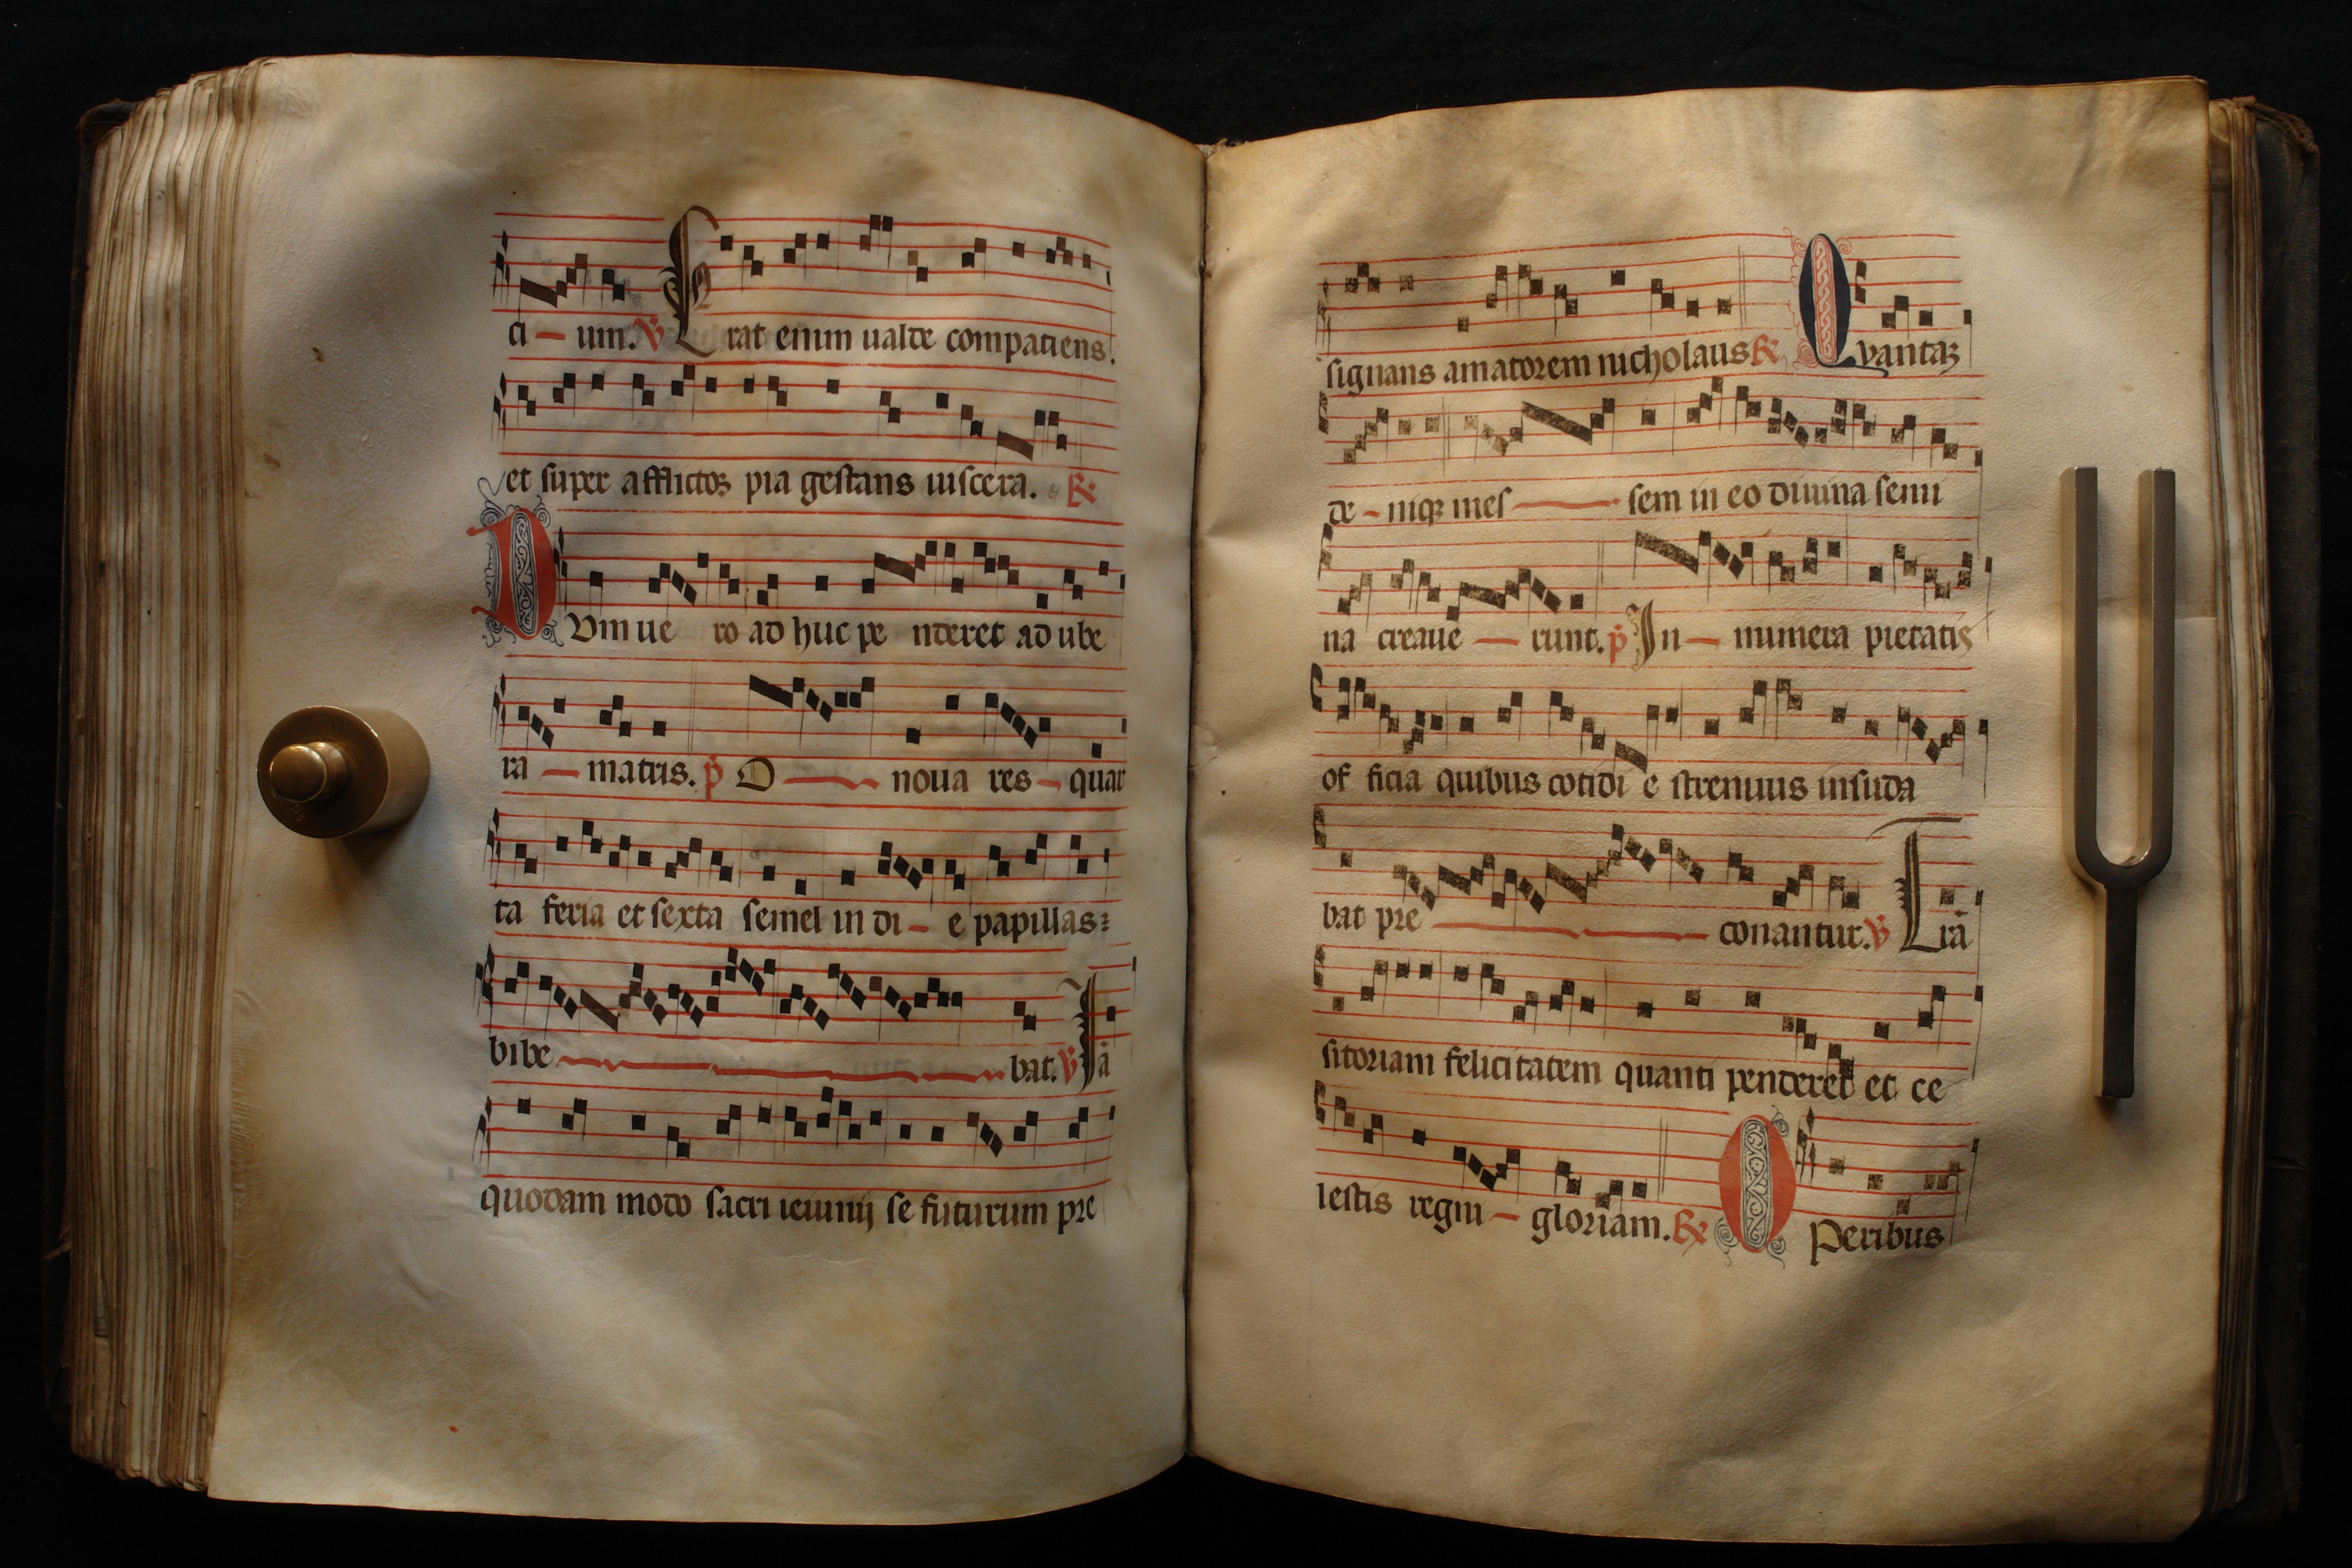 ci – um. ℣ Erat enim ualde compatiens.
et super afflictoꝝ pia gestans uiscera. ℟
DVm ue ro ad huc pe nderet ad ube
ra – matris. p̄ O – noua res – quar
ta feria et sexta semel in di – e papillas:
bibe – bat. ℣ Iā
quodam modo sacri ieiunij se futurum pre
signans amatorem nicholaus ℟ Qvantaꝫ
de – niqꝫ mes – sem in eo diuina semi
na creaue – runt. p̄ In – numera pietatis
of ficia quibus cotidi e strenuus insuda
bat pre – conantur. ℣ Trā
sitoriam felicitatem quanti penderet et ce
lestis regni – gloriam. ℟ OPeribus